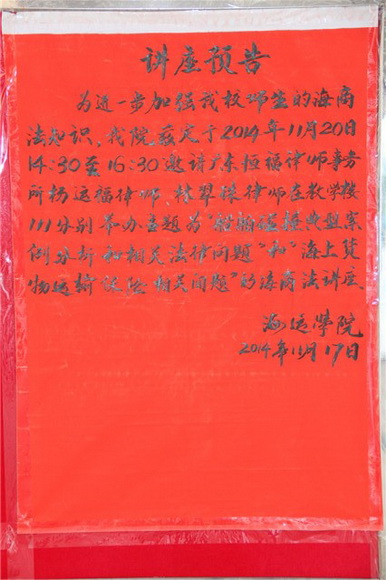 讲座预告
为进一步加强我校师生的海商
法知识，我院兹定于2014年11月20日
14:30至16:30邀请广东恒福律师事务
所杨运福律师、林翠珠律师在教学楼
111分别举办主题为“船舶碰撞典型案
例分析和相关法律问题”和“海上货
物运输保险相关问题”的海商法讲座。
海运學院
2014年11月17日